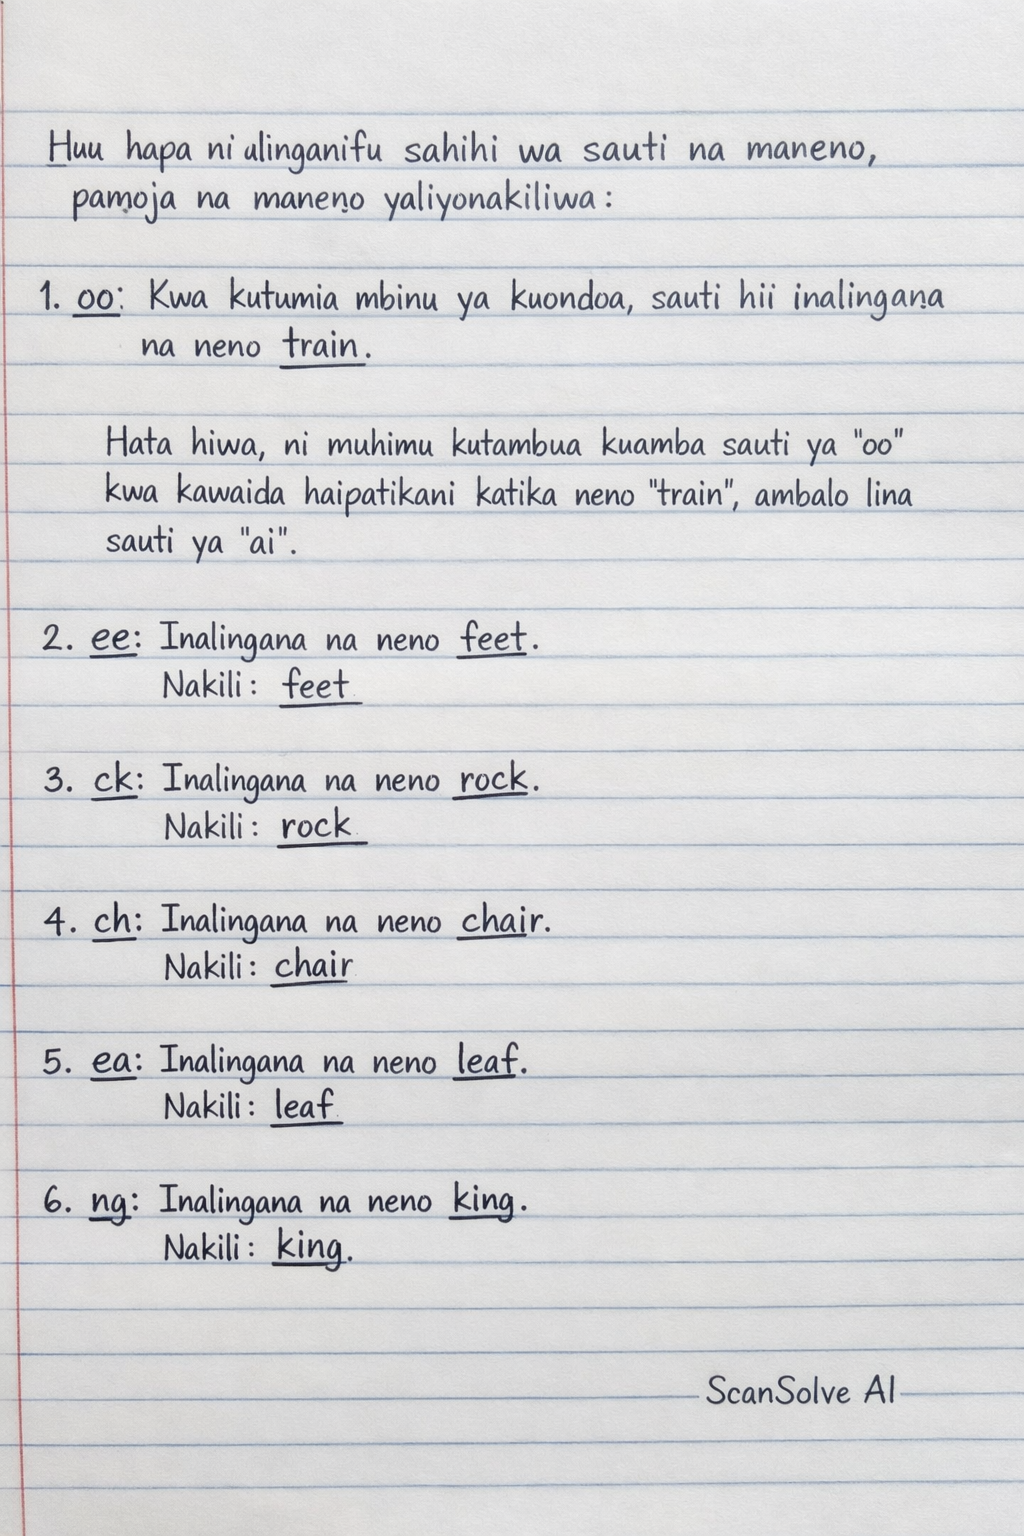 Huu hapa ni ulinganifu sahihi wa sauti na maneno,
pamoja na maneno yaliyonakiliwa:
1. oo: Kwa kutumia mbinu ya kuondoa, sauti hii inalingana
na neno train.
Hata hiwa, ni muhimu kutambua kuamba sauti ya "oo"
kwa kawaida haipatikani katika neno "train", ambalo lina
sauti ya "ai".
2. ee: Inalingana na neno feet.
Nakili: feet
3. ck: Inalingana na neno rock.
Nakili: rock
4. ch: Inalingana na neno chair.
Nakili: chair
5. ea: Inalingana na neno leaf.
Nakili: leaf
6. ng: Inalingana na neno king.
Nakili: king.
ScanSolve AI